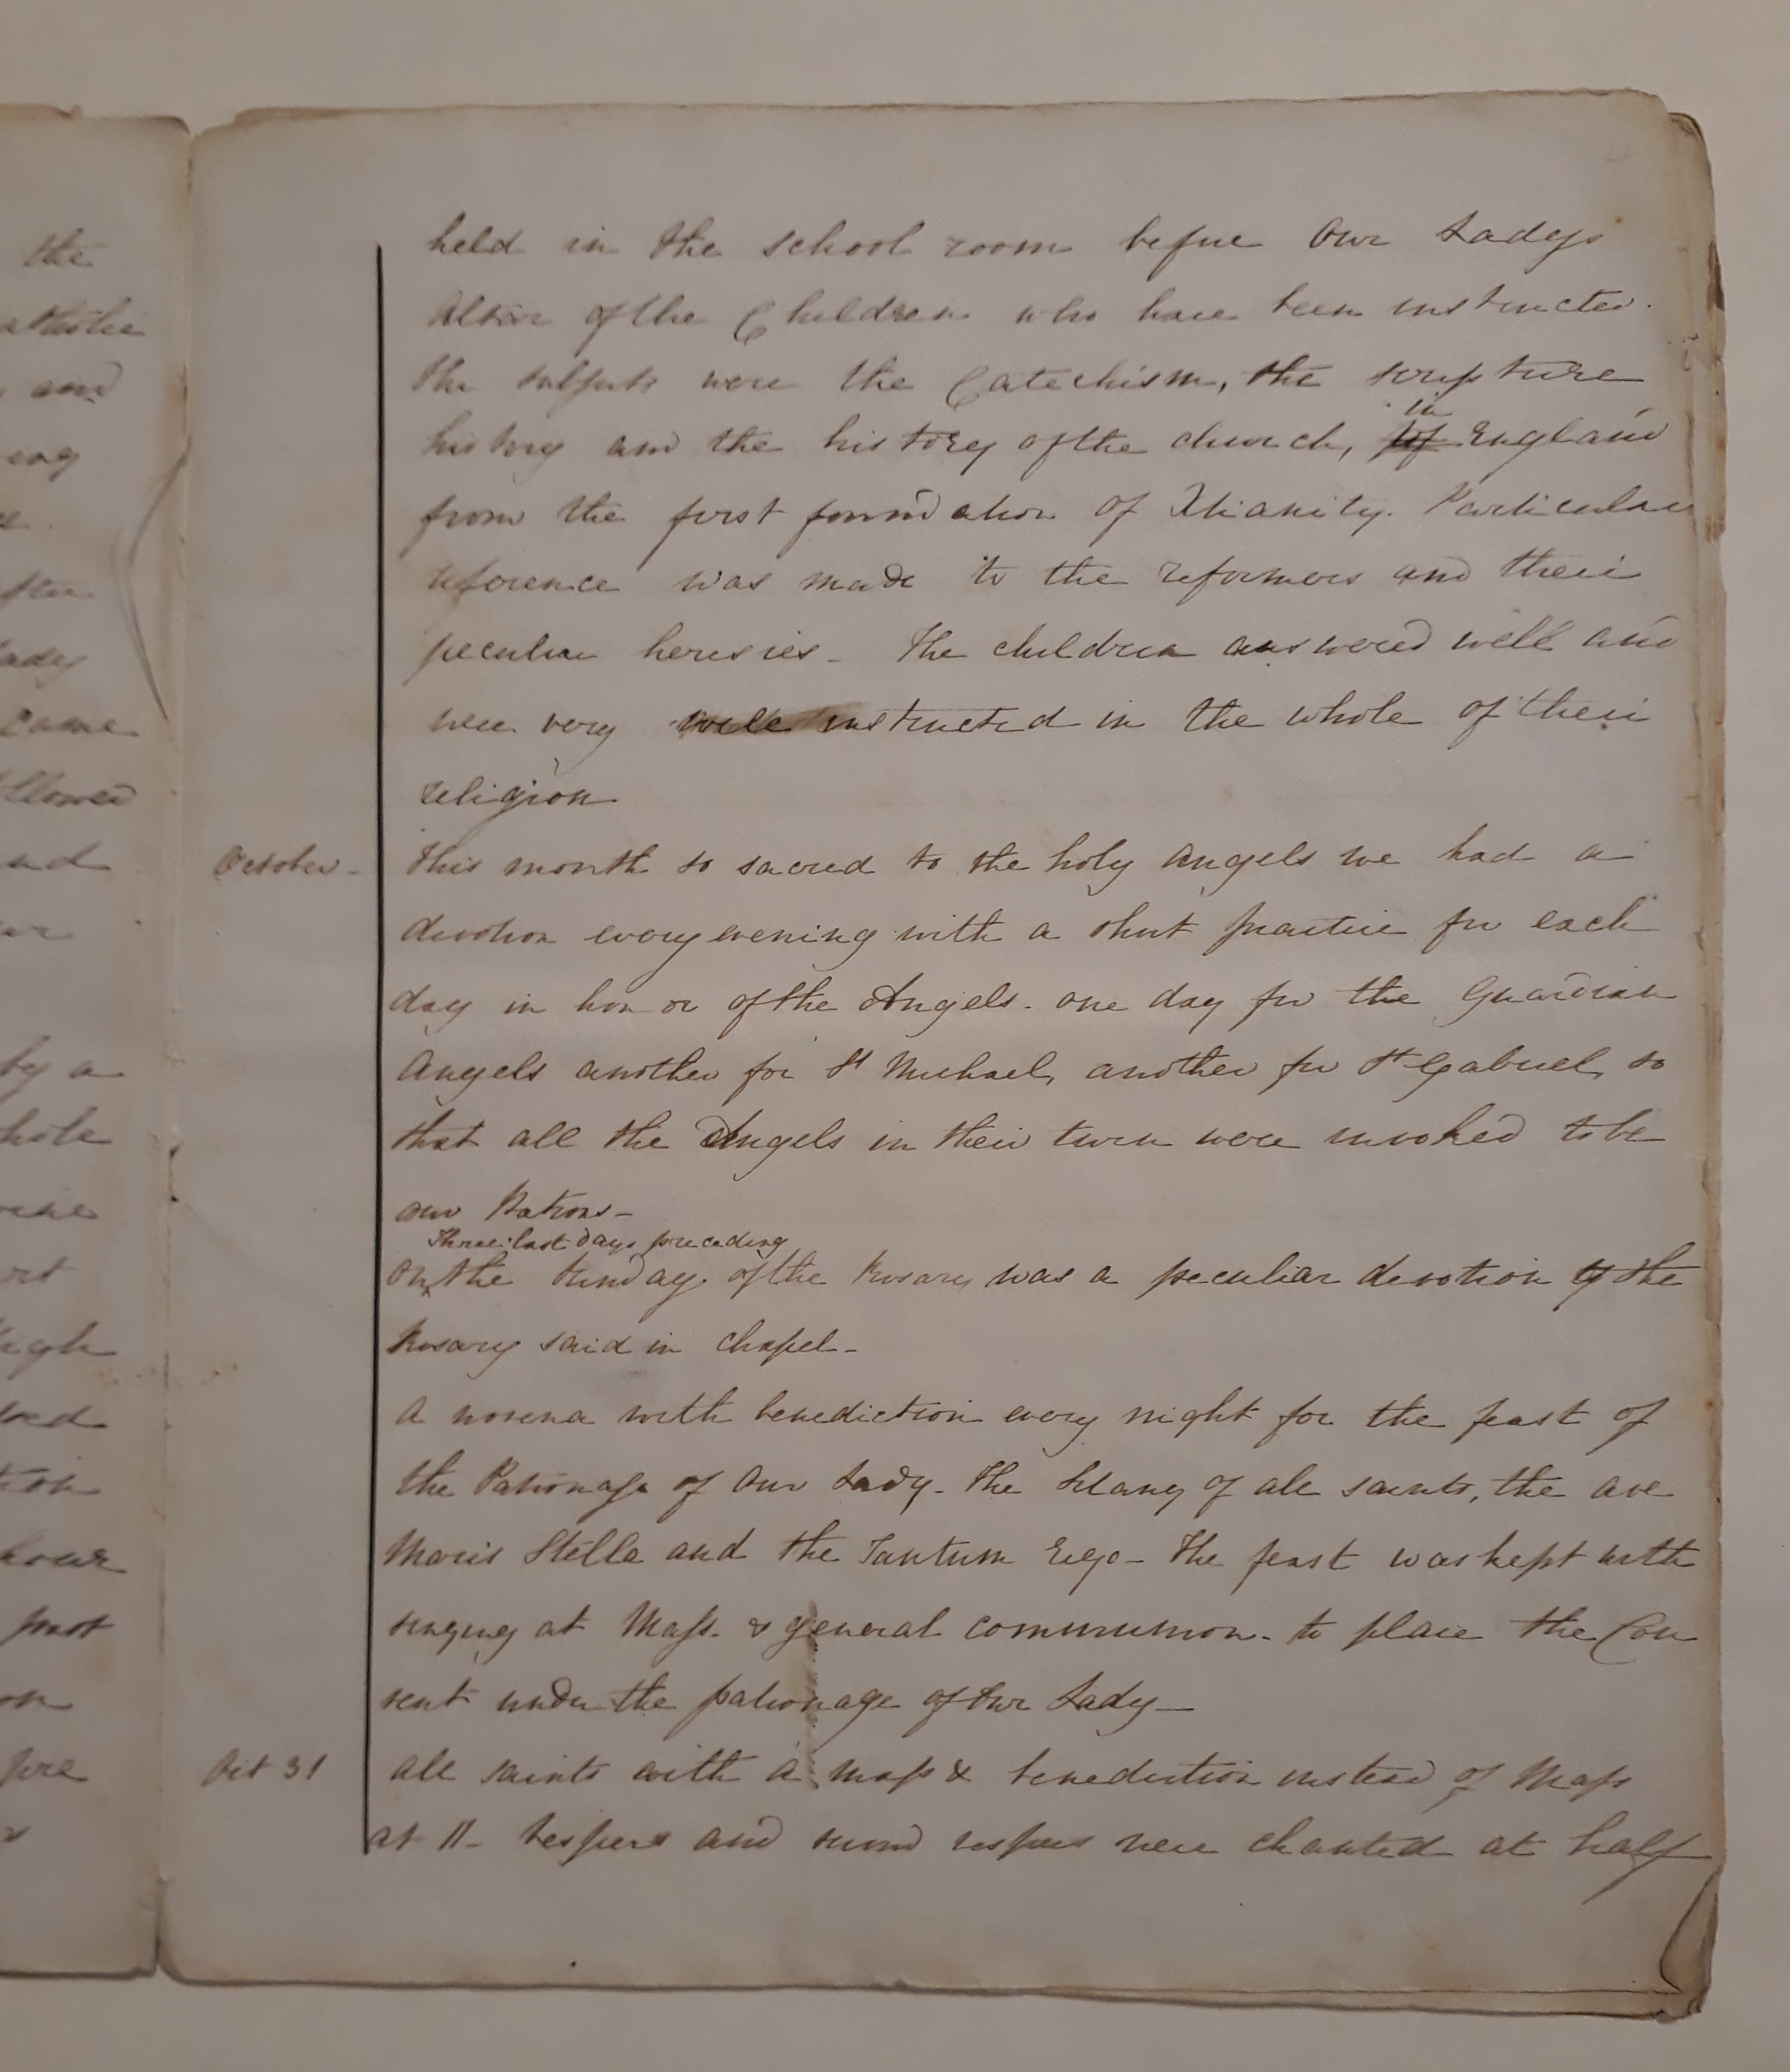 held in the school room before Our Ladys
Altar of the Children who have been instructed.
The subjects were the Catechism, the scripture
history and the history of the church, in England
from the first foundation of Xtianity. Particular
reference was made to the reformers and their
peculiar heresies - The children answered well and
were very well instructed in the whole of their
religion
October - This month so sacred to the holy Angels we had a
devotion every evening with a short practice for each
day in honor of the Angels - one day for the Guardian
Angels another for St Michael, another for St Gabriel, so
that all the Angels in their turn were invoked to be
our Patrons -
Three last days preceding
On the Sunday of the Rosary was a peculiar devotion of the
Rosary said in chapel -
A novena with benediction every night for the feast of
the Patronage of Our Lady - The Litany of all saints, the Ave
Maris Stella and the Tantum Ergo - The feast was kept with
singing at Mass. & general communion - to place the Con
vent under the patronage of Our Lady -
Oct 31 All saints with a Mass & benediction instead of Mass
at 11 - Vespers and second vespers were chanted at half
the
and
Lady
came
llowed
by a
whole
high
hour
past
on
pre